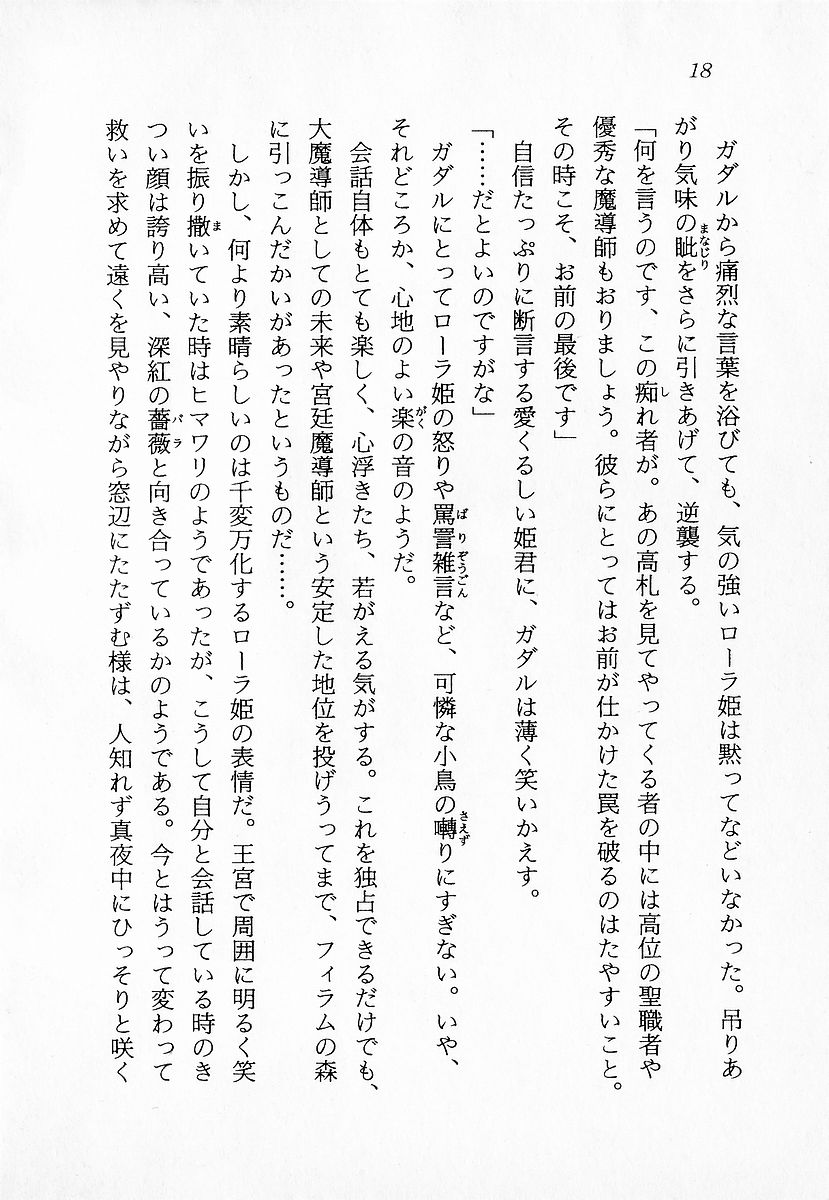 18
ガダルから痛烈な言葉を浴びても、気の強いローラ姫は黙ってなどいなかった。吊りあ
がり気味の眦をさらに引きあげて、逆襲する。
「何を言うのです、この痴れ者が。あの高札を見てやってくる者の中には高位の聖職者や
優秀な魔導師もおりましょう。彼らにとってはお前が仕かけた罠を破るのはたやすいこと。
その時こそ、お前の最後です」
自信たっぷりに断言する愛くるしい姫君に、ガダルは薄く笑いかえす。
「……だとよいのですがな」
ガダルにとってローラ姫の怒りや罵詈雑言など、可憐な小鳥の囀りにすぎない。いや、
それどころか、心地のよい楽の音のようだ。
会話自体もとても楽しく、心浮きたち、若がえる気がする。これを独占できるだけでも、
大魔導師としての未来や宮廷魔導師という安定した地位を投げうってまで、フィラムの森
に引っこんだかいがあったというものだ……。
しかし、何より素晴らしいのは千変万化するローラ姫の表情だ。王宮で周囲に明るく笑
いを振り撒いていた時はヒマワリのようであったが、こうして自分と会話している時のき
つい顔は誇り高い、深紅の薔薇と向き合っているかのようである。今とはうって変わって
救いを求めて遠くを見やりながら窓辺にたたずむ様は、人知れず真夜中にひっそりと咲く